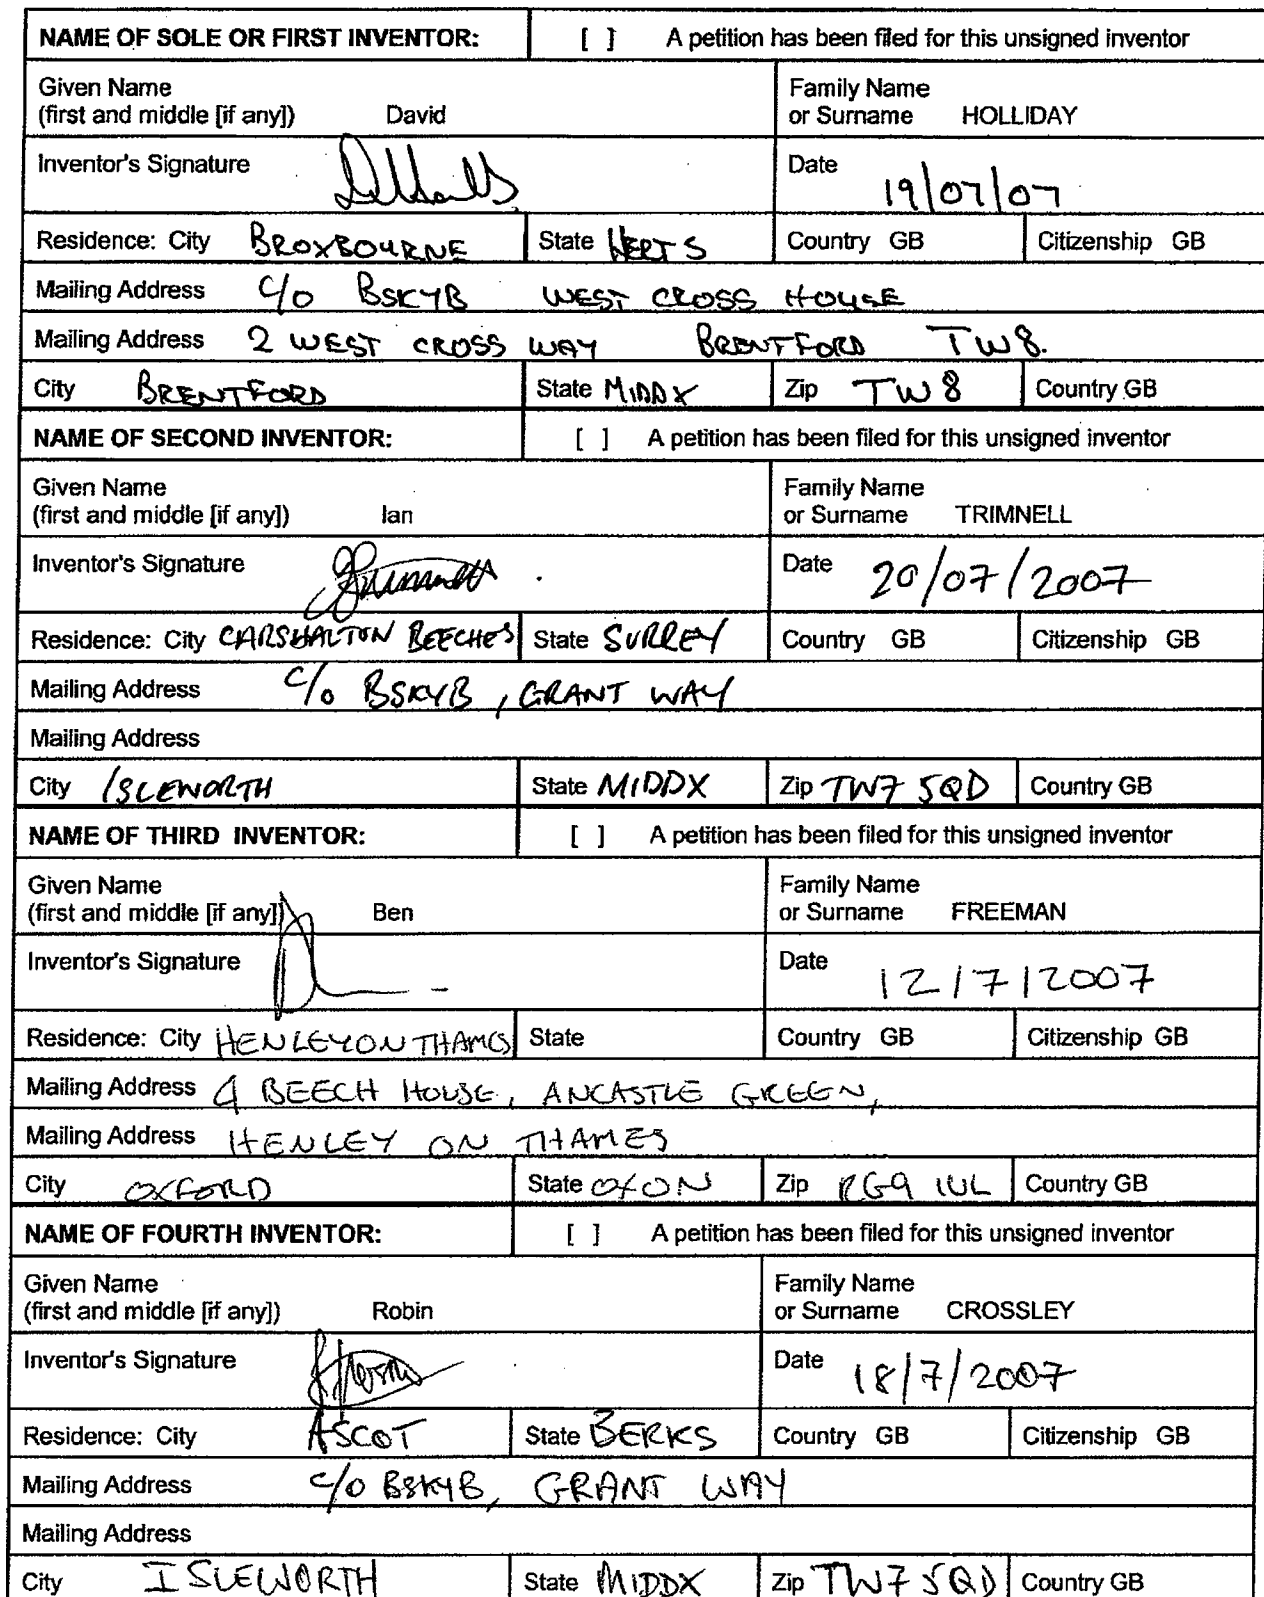 NAME OF SOLE OR FIRST INVENTOR: [ ] A petition has been filed for this unsigned inventor
Given Name Family Name
(first and middle [if any]) David or Surname HOLLIDAY
Inventor's Signature Date 19/07/07
Residence: City BROXBOURNE State HERTS Country GB Citizenship GB
Mailing Address C/o BSKYB WEST CROSS HOUSE
Mailing Address 2 WEST CROSS WAY BRENTFORD TW8.
City BRENTFORD State MIDDX Zip TW8 Country GB
NAME OF SECOND INVENTOR: [ ] A petition has been filed for this unsigned inventor
Given Name Family Name
(first and middle [if any]) Ian or Surname TRIMNELL
Inventor's Signature Date 20/07/2007
Residence: City CARSHALTON BEECHES State SURREY Country GB Citizenship GB
Mailing Address C/o BSKYB, GRANT WAY
Mailing Address
City ISLEWORTH State MIDDX Zip TW7 5QD Country GB
NAME OF THIRD INVENTOR: [ ] A petition has been filed for this unsigned inventor
Given Name Family Name
(first and middle [if any]) Ben or Surname FREEMAN
Inventor's Signature Date 12/7/2007
Residence: City HENLEY ON THAMES State Country GB Citizenship GB
Mailing Address 4 BEECH HOUSE, ANCASTLE GREEN,
Mailing Address HENLEY ON THAMES
City OXFORD State OXON Zip RG9 1UL Country GB
NAME OF FOURTH INVENTOR: [ ] A petition has been filed for this unsigned inventor
Given Name Family Name
(first and middle [if any]) Robin or Surname CROSSLEY
Inventor's Signature Date 18/7/2007
Residence: City ASCOT State BERKS Country GB Citizenship GB
Mailing Address C/O BSKYB, GRANT WAY
Mailing Address
City ISLEWORTH State MIDDX Zip TW7 5QD Country GB